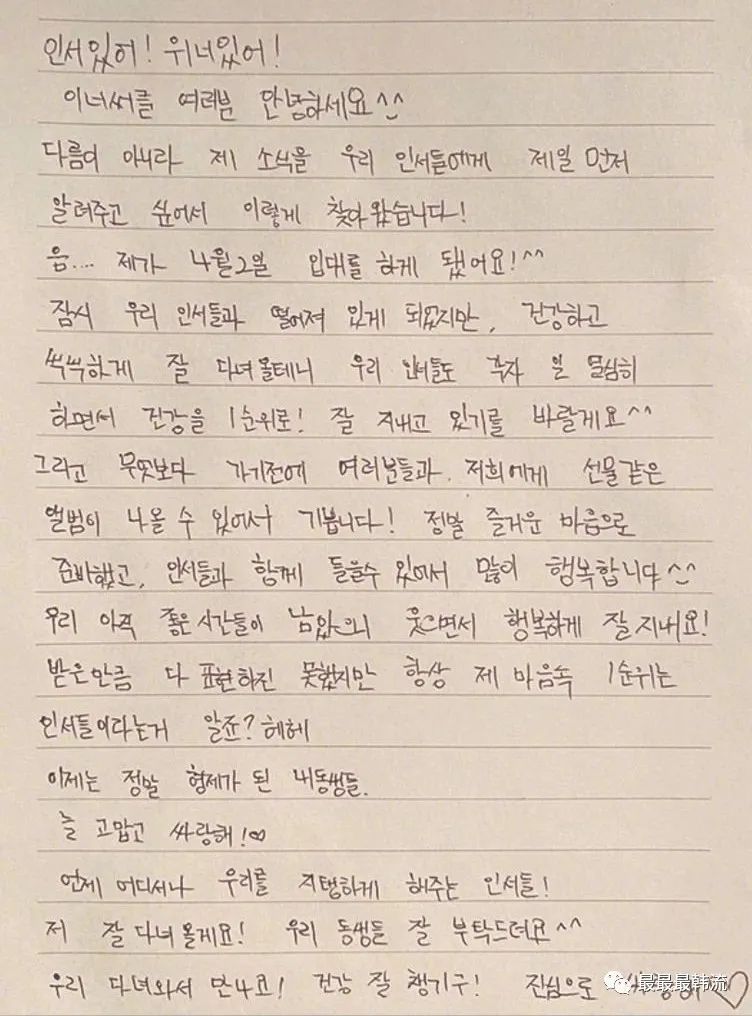 인서있어! 위너있어!
이너써클 여러분 안녕하세요^^
다름이 아니라 제 소식을 우리 인서들에게 제일 먼저
알려주고 싶어서 이렇게 찾아왔습니다!
음.... 제가 4월2일 입대를 하게 됐어요!^^
잠시 우리 인서들과 떨어져 있게 되었지만, 건강하고
씩씩하게 잘 다녀올테니 우리 인서들도 각자 일 열심히
하면서 건강을 1순위로! 잘 지내고 있기를 바랄게요^^
그리고 무엇보다 가기전에 여러분들과 저희에게 선물같은
앨범이 나올 수 있어서 기쁩니다! 정말 즐거운 마음으로
준비했고, 인서들과 함께 들을수 있어서 많이 행복합니다^^
우리 아직 좋은 시간들이 남았으니 웃으면서 행복하게 잘 지내요!
받은만큼 다 표현하진 못했지만 항상 제 마음속 1순위는
인서들이라는거 알죠? 헤헤
이제는 정말 형제가 된 내동생들.
늘 고맙고 싸랑해!♡
언제 어디서나 우리를 지탱하게 해주는 인서들!
저 잘 다녀올게요! 우리 동생들 잘 부탁드려요^^
우리 다녀와서 만나요! 건강 잘 챙기구! 진심으로 ♡
最最最韩流